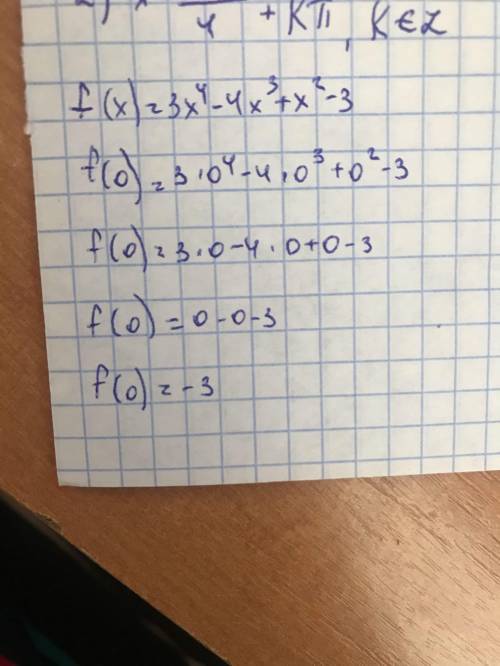 4 + Kπ, K∈Z
f(x)=3x⁴-4x³+x²-3
f(0)=3·0⁴-4·0³+0²-3
f(0)=3·0-4·0+0-3
f(0)=0-0-3
f(0)=-3